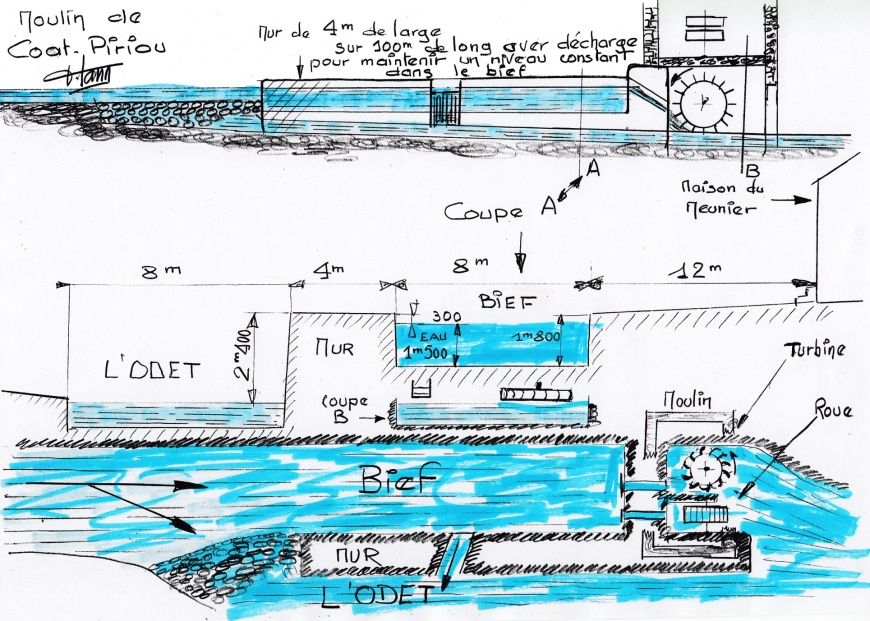 Moulin de
Coat-Piriou
Mur de 4m de large
sur 100m de long aver décharge
pour maintenir un niveau constant
dans le bief
B
Maison du
Meunier
A
Coupe A
8m
4m
8m
12m
BiEF
300
EAU
1m500
1m800
MUR
L'ODET
2m400
Turbine
coupe
B
Moulin
Roue
Bief
MUR
L'ODET